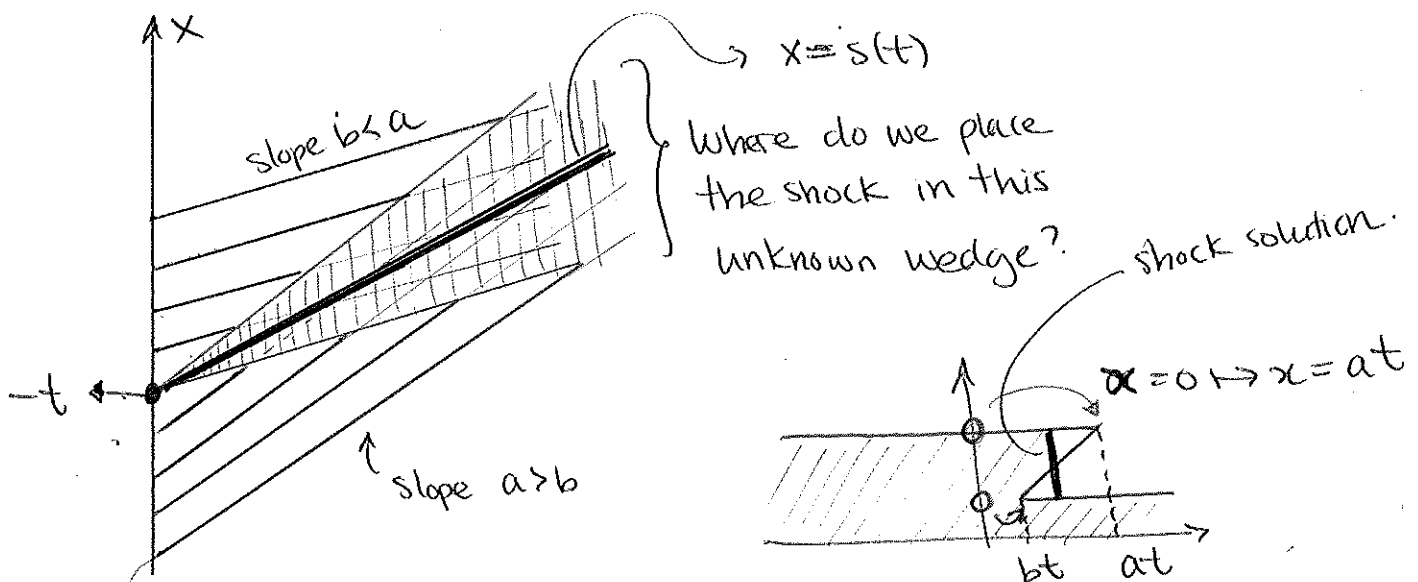 x
x = s(t)
slope b < a
Where do we place
the shock in this
unknown wedge?
shock solution.
-t
x = 0 ↦ x = at
slope a > b
bt
at